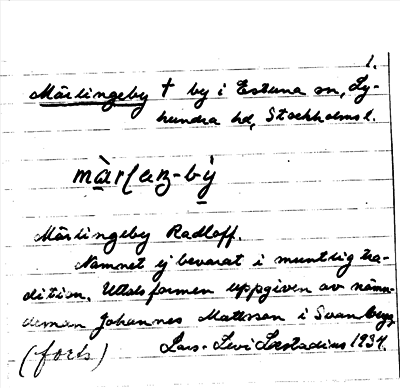 1.
Märlingeby † by i Estuna sn, Ly-
hundra hd, Stockholms l.
Märlingeby Radloff.
Namnet ej bevarat i muntlig tra-
dition. Uttalsformen uppgiven av nämn-
deman Johannes Mattsson i Svanberga
(forts) Lars-Levi Læstadius 1934.